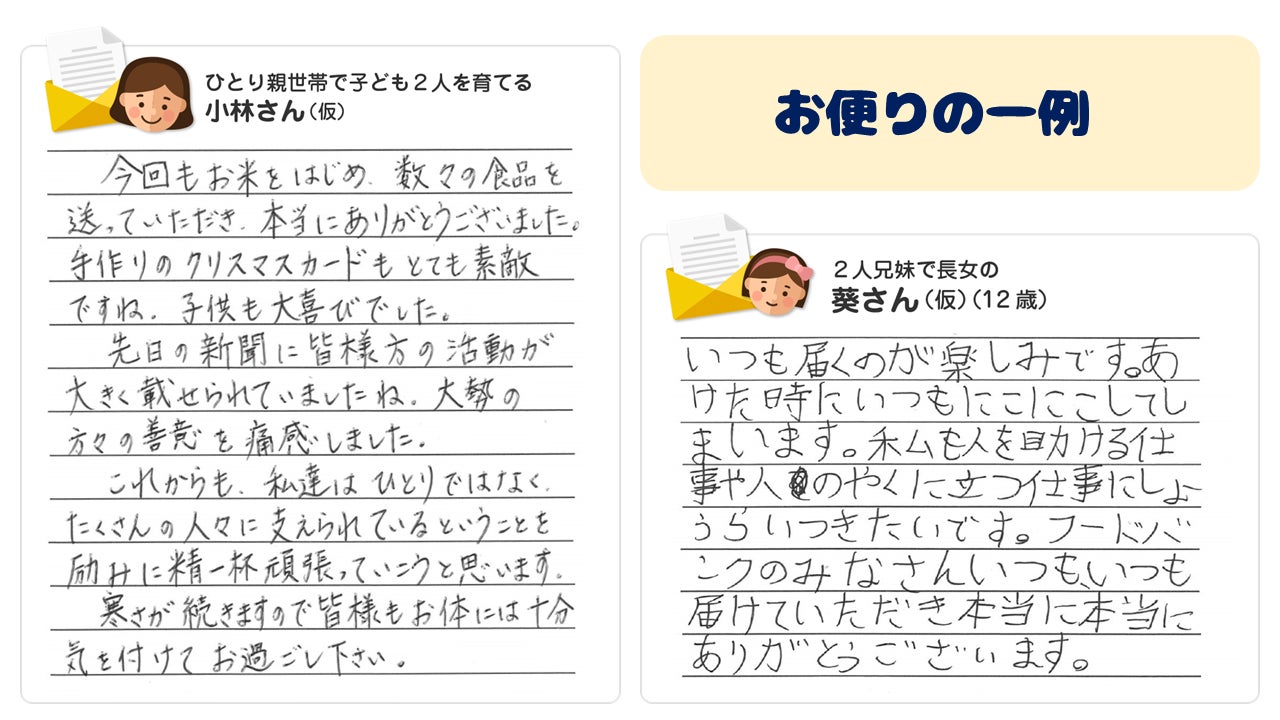 ひとり親世帯で子ども2人を育てる
小林さん(仮)
今回もお米をはじめ、数々の食品を
送っていただき、本当にありがとうございました。
手作りのクリスマスカードもとても素敵
ですね。子供も大喜びでした。
先日の新聞に皆様方の活動が
大きく載せられていましたね。大勢の
方々の善意を痛感しました。
これからも、私達はひとりではなく、
たくさんの人々に支えられているということを
励みに精一杯頑張っていこうと思います。
寒さが続きますので皆様もお体には十分
気を付けてお過ごし下さい。
お便りの一例
2人兄妹で長女の
葵さん(仮)(12歳)
いつも届くのが楽しみです。あ
けた時にいつもにこにこしてし
まいます。私も人を助ける仕
事や人のやくに立つ仕事にしょ
うらいつきたいです。フードバ
ンクのみなさんいつも、いつも
届けていただき本当に本当に
ありがとうございます。